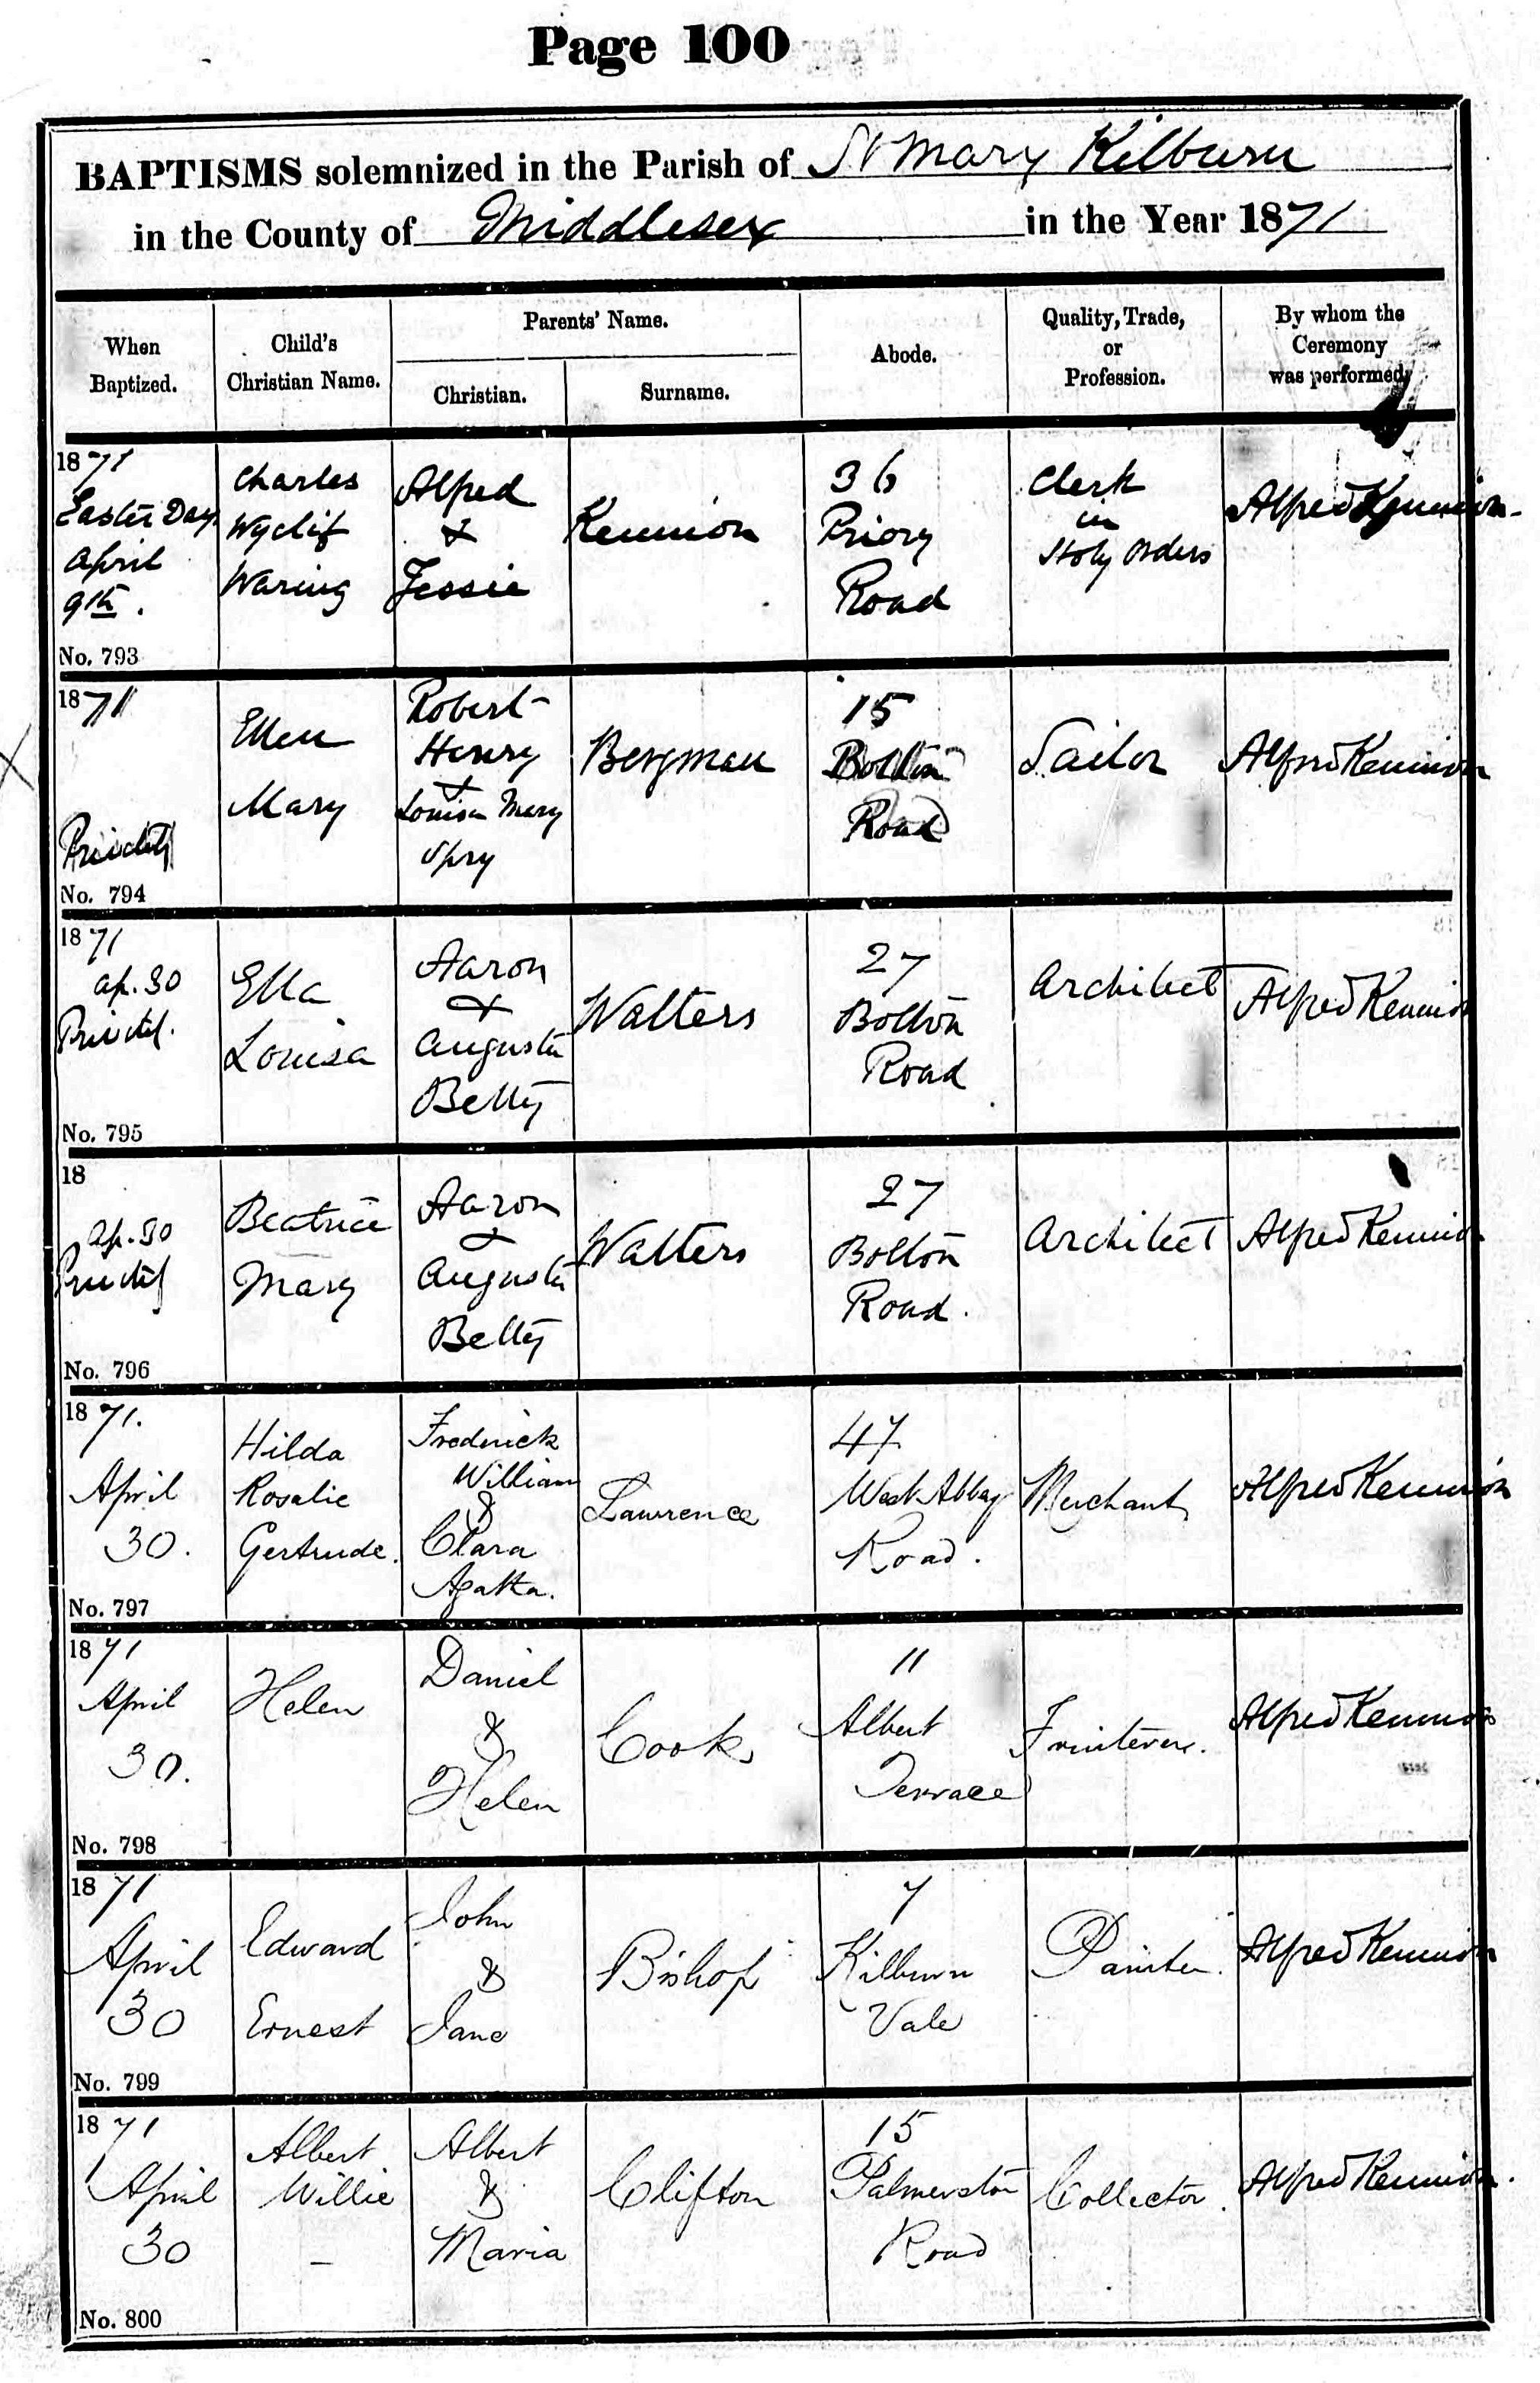 Page 100
BAPTISMS solemnized in the Parish of St Mary Kilburn
in the County of Middlesex in the Year 1871
When
Baptized.
Child's
Christian Name.
Parents' Name.
Christian.
Surname.
Abode.
Quality, Trade,
or
Profession.
By whom the
Ceremony
was performed.
1871
Easter Day
April
9th.
No. 793
Charles
Wyclif
Waring
Alfred
&
Jessie
Kennion
36
Priory
Road
Clerk
in
Holy Orders
Alfred Kennion
1871
Privately
No. 794
Ellen
Mary
Robert
Henry
&
Louisa Mary
Spry
Bergman
15
Bolton
Road
Sailor
Alfred Kennion
1871
Ap. 30
Privately.
No. 795
Ella
Louisa
Aaron
&
Augusta
Betty
Walters
27
Bolton
Road
Architect
Alfred Kennion
18
Ap. 30
Privately
No. 796
Beatrice
Mary
Aaron
&
Augusta
Betty
Walters
27
Bolton
Road.
Architect
Alfred Kennion
1871.
April
30.
No. 797
Hilda
Rosalie
Gertrude.
Frederick
William
&
Clara
Agatha.
Lawrence
47
West Abbey
Road.
Merchant
Alfred Kennion
1871
April
30.
No. 798
Helen
Daniel
&
Helen
Cook
11
Albert
Terrace
Fruiterer.
Alfred Kennion
1871
April
30
No. 799
Edward
Ernest
John
&
Jane
Bishop
7
Kilburn
Vale
Painter.
Alfred Kennion
1871
April
30
No. 800
Albert
Willie
—
Albert
&
Maria
Clifton
15
Palmerston
Road
Collector.
Alfred Kennion.